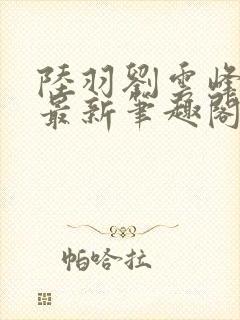 陸羽劉雲峰
最新筆趣閣
帕哈拉